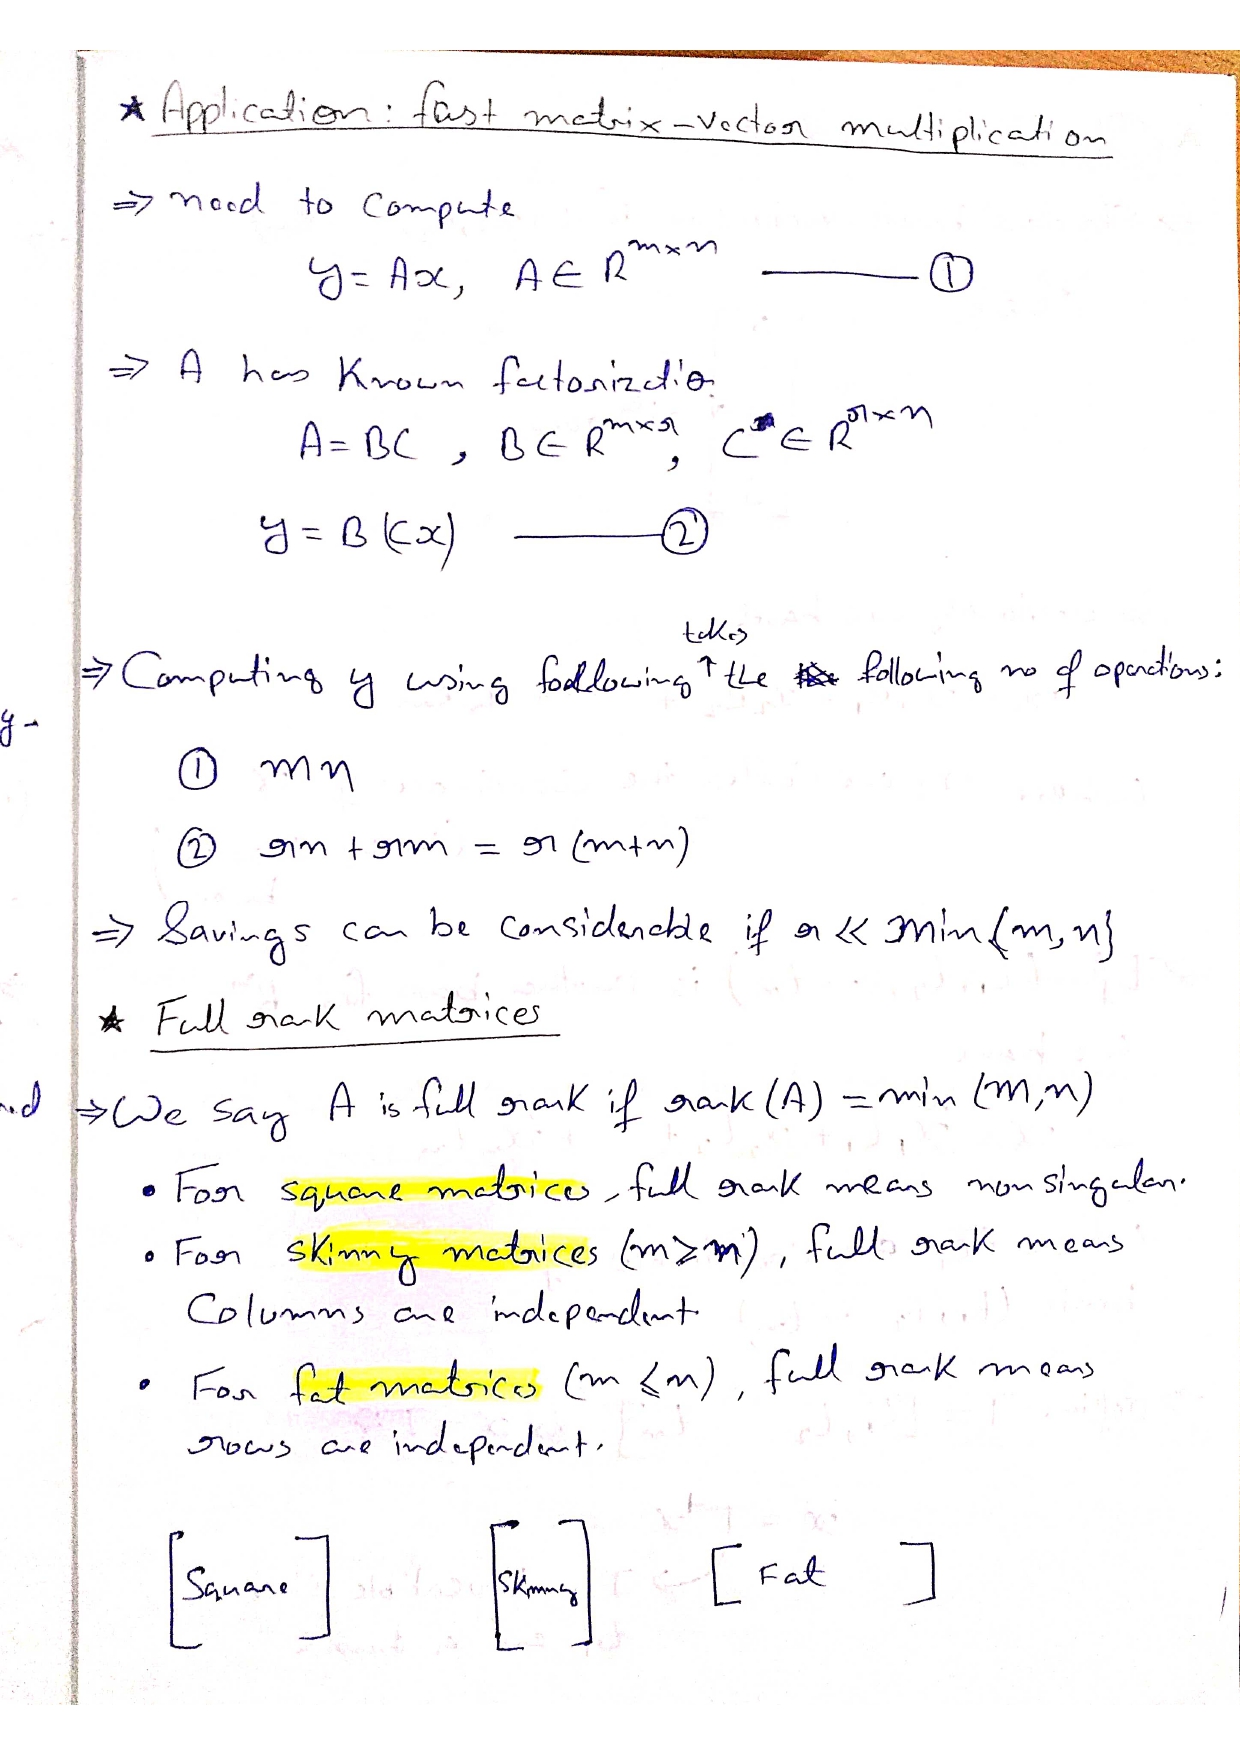 ★ Application: fast matrix-vector multiplication
⇒ need to compute
y = Ax, A ∈ R^{m×n} ——— ①
⇒ A has Known factorizatio
A = BC , B ∈ R^{m×r}, C ∈ R^{r×n}
y = B(Cx) ——— ②
takes
⇒ Computing y using following ↑ the following no of operations:
y -
① mn
② rn + rm = r(m+n)
⇒ Savings can be considerable if r << min{m,n}
★ Full rank matrices
⇒ We say A is full rank if rank(A) = min(m,n)
• For square matrices, full rank means nonsingular.
• For skinny matrices (m ≥ n), full rank means
Columns are independent.
• For fat matrices (m ≤ n), full rank means
rows are independent.
[Square] [Skinny] [Fat]